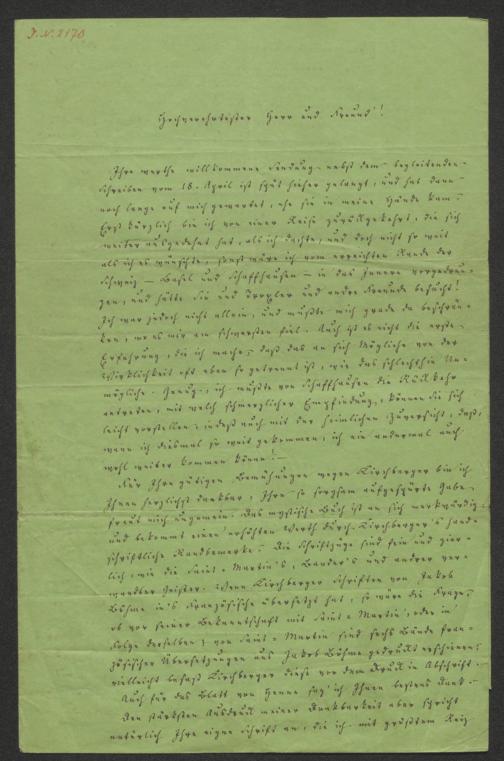 J. N. 2170
Hochverehrtester Herr und Freund!
Ihre werthe willkommene Sendung nebst dem begleitenden
Schreiben vom 18. April ist spät hieher gelangt, und hat dann
noch lange auf mich gewartet, ehe sie in meine Hände kam.
Erst kürzlich bin ich von einer Reise zurückgekehrt, die sich
weiter ausgedehnt hat, als ich dachte, und doch nicht so weit
als ich es wünschte, sonst wäre ich vom erreichten Rande der
Schweiz – Basel und Schaffhausen – in das Innere vorgedrun-
gen, und hätte Sie und Troxler und andre Freunde besucht!
Ich war jedoch nicht allein, und mußte mich grade da beschrän-
ken, wo es mir am schwersten fiel. Auch ist es nicht die erste
Erfahrung, die ich mache, daß das an sich Mögliche von der
Wirklichkeit oft eben so getrennt ist, wie das schlechthin Un-
mögliche. Genug, ich mußte von Schaffhausen die Rückkehr
antreten, mit welch schmerzlicher Empfindung, können Sie sich
leicht vorstellen, indeß auch mit der heimlichen Zuversicht, daß,
wenn ich diesmal so weit gekommen, ich ein andermal auch
wohl weiter kommen könne! –
Für Ihre gütigen Bemühungen wegen Kirchberger bin ich
Ihnen herzlichst dankbar, Ihre so sorgsam aufgespürte Gabe
freut mich ungemein. Das mystische Buch ist an sich merkwürdig,
und bekommt einen erhöhten Werth durch Kirchberger's hand-
schriftliche Randbemerke. Die Schriftzüge sind fein und zier-
lich, wie die Saint-Martin's, Baader's und andrer ver-
wandter Geister. Wenn Kirchberger Schriften von Jakob
Böhme in's Französische übersetzt hat, so wäre die Frage,
ob vor seiner Bekanntschaft mit Saint-Martin, oder in
Folge derselben; von Saint-Martin sind sechs Bände fran-
zösischer Übersetzungen aus Jakob Böhme gedruckt erschienen;
vielleicht besaß Kirchberger diese vor dem Druck in Abschrift.
Auch für das Blatt von Henne sag' ich Ihnen bestens Dank.
Den stärksten Ausdruck meiner Dankbarkeit aber spricht
natürlich Ihre eigne Schrift an, die ich mit größtem Reiz